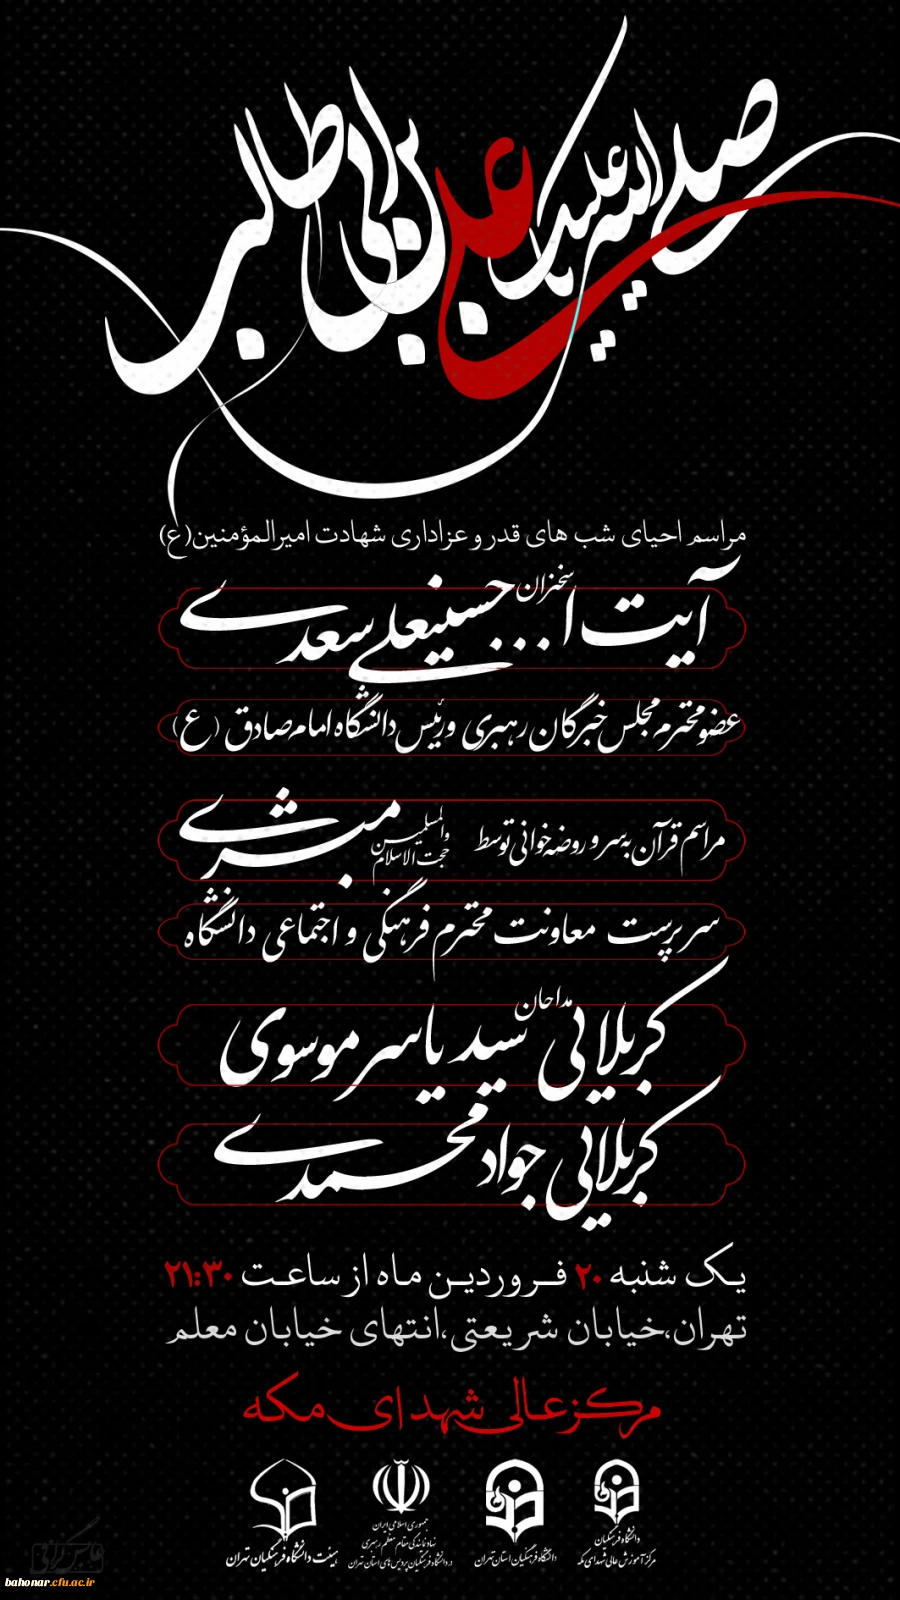 صلی الله علیک یا علی بن ابی طالب
مراسم احیای شب های قدر و عزاداری شهادت امیرالمؤمنین(ع)
سخنران
آیت ا... حسینعلی سعدی
عضو محترم مجلس خبرگان رهبری و رئیس دانشگاه امام صادق (ع)
مراسم قرآن به سر و روضه خوانی توسط حجت الاسلام والمسلمین مبشری
سرپرست معاونت محترم فرهنگی و اجتماعی دانشگاه
مداحان
کربلائی سید یاسر موسوی
کربلایی جواد محمدی
یک شنبه ۲۰ فروردین ماه از ساعت ۲۱:۳۰
تهران،خیابان شریعتی،انتهای خیابان معلم
مرکز عالی شهدای مکه
دانشگاه فرهنگیان
مرکز آموزش عالی شهدای مکه
دانشگاه فرهنگیان استان تهران
جمهوری اسلامی ایران
نهاد نمایندگی مقام معظم رهبری
در دانشگاه فرهنگیان پردیس های استان تهران
هیئت دانشگاه فرهنگیان تهران
bahonar.cfu.ac.ir